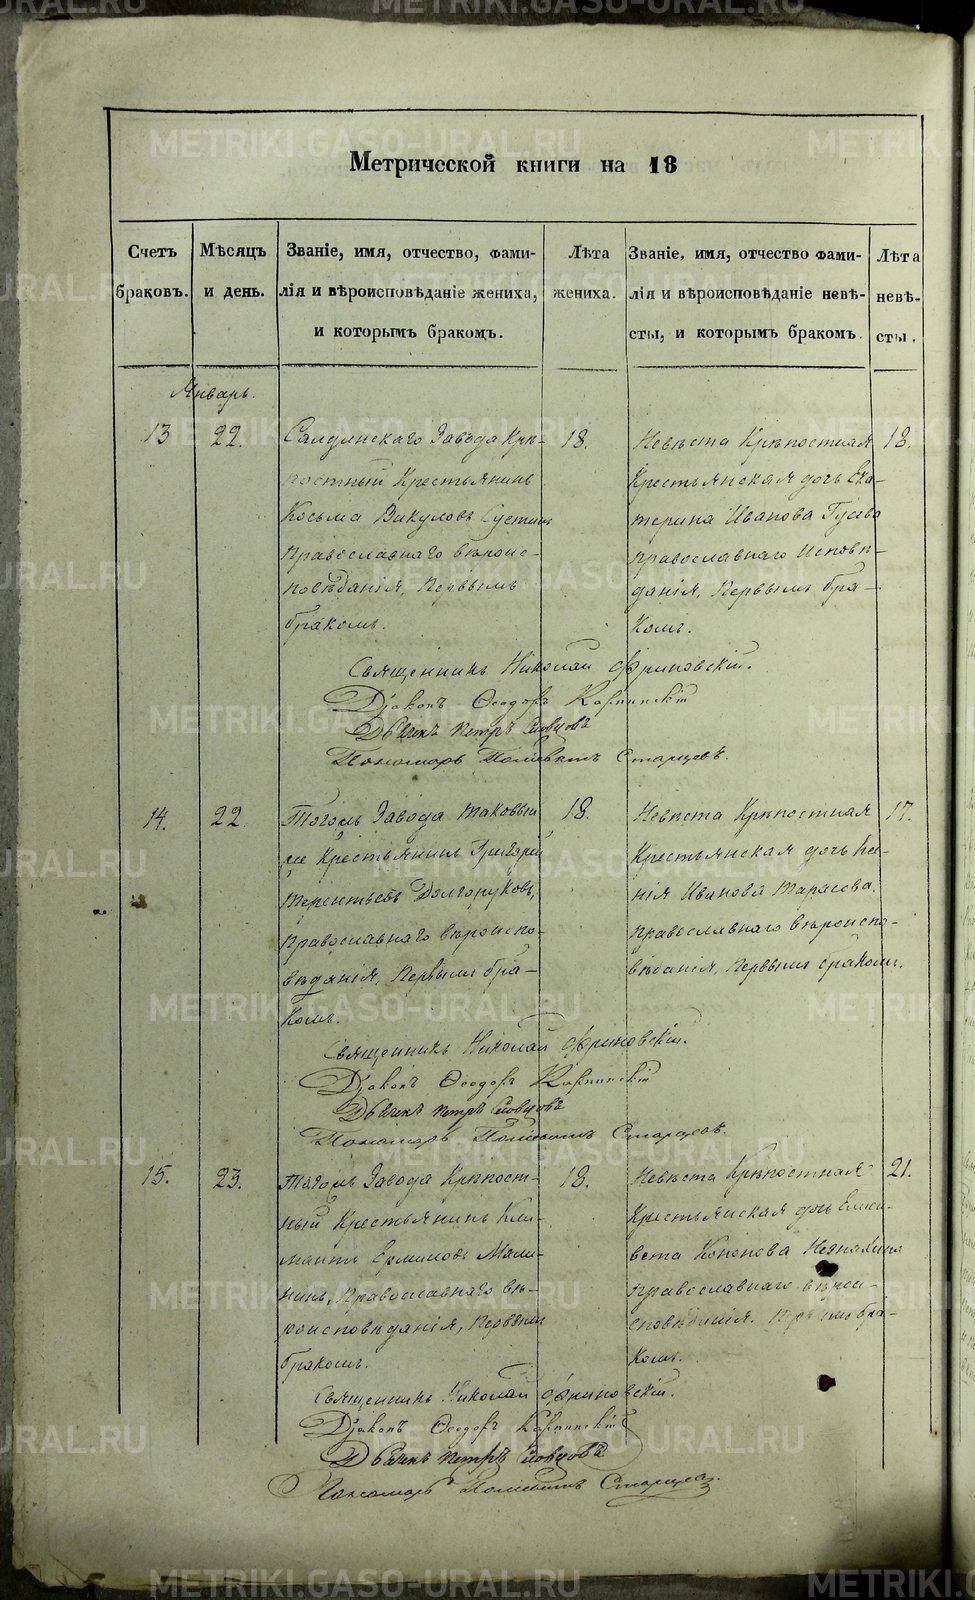 Метрической книги на 18
Счетъ браковъ.
Мѣсяцъ и день.
Званіе, имя, отчество, фами-
лія и вѣроисповѣданіе жениха,
и которымъ бракомъ.
Лѣта жениха.
Званіе, имя, отчество фами-
лія и вѣроисповѣданіе невѣ-
сты, и которымъ бракомъ.
Лѣта невѣ-
сты.
Январь.
13
22.
Салдинскаго Завода Крѣ-
постный Крестьянинъ
Косьма Викуловъ Сустинъ
Православнаго вѣроис-
повѣданія, Первымъ
бракомъ.
18.
Невѣста Крѣпостная
Крестьянская дочь Ека-
терина Иванова Гусева
православнаго исповѣ-
данія, Первымъ бра-
комъ.
18.
Священникъ Николай Фриновскій.
Діаконъ Ѳеодоръ Карпинскій
Дьячекъ Петръ Словцовъ
Пономарь Старцевъ.
14.
22.
Тогожъ Завода таковый
же Крестьянинъ Григорій
Терентьевъ Долгоруковъ,
Православнаго вѣроиспо-
вѣданія, Первымъ бра-
комъ.
18.
Невѣста Крѣпостная
Крестьянская дочь
Иванова Тарасова.
православнаго вѣроиспо-
вѣданія, Первымъ бракомъ.
17.
Священникъ Николай Фриновскій.
Діаконъ Ѳеодоръ Карпинскій
Дьячекъ Петръ Словцовъ
Пономарь Старцевъ.
15.
23.
Тогожъ Завода Крѣпост-
ный Крестьянинъ Кли-
ментъ Ермиловъ Мали-
нинъ, Православнаго вѣ-
роисповѣданія, Первымъ
бракомъ.
18.
Невѣста Крѣпостная
Крестьянская дочь Елиса-
вета Кононова
православнаго вѣрои-
сповѣданія. Первымъ бра-
комъ.
21.
Священникъ Николай Фриновскій.
Діаконъ Ѳеодоръ Карпинскій
Дьячекъ Петръ Словцовъ
Пономарь Старцевъ.
METRIKI.GASO-URAL.RU